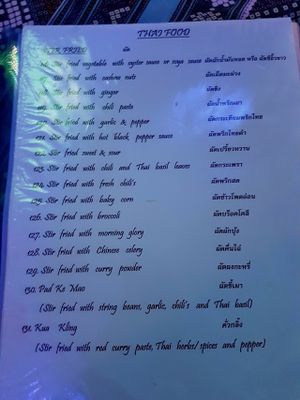 THAI FOOD
STIR FRIED ผัด
116. Stir fried vegetable with oyster sauce or soya sauce ผัดผักน้ำมันหอย หรือ ผัดซีอิ๊วขาว
117. Stir fried with cashew nuts ผัดเม็ดมะม่วง
118. Stir fried with ginger ผัดขิง
119. Stir fried with chili pasta ผัดน้ำพริกเผา
120. Stir fried with garlic & pepper ผัดกระเทียมพริกไทย
121. Stir fried with hot black pepper sauce ผัดพริกไทยดำ
122. Stir fried sweet & sour ผัดเปรี้ยวหวาน
123. Stir fried with chili and Thai basil leaves ผัดกระเพรา
124. Stir fried with fresh chili's ผัดพริกสด
125. Stir fried with baby corn ผัดข้าวโพดอ่อน
126. Stir fried with broccoli ผัดบร็อคโคลี
127. Stir fried with morning glory ผัดผักบุ้ง
128. Stir fried with Chinese celery ผัดคื่นไฉ่
129. Stir fried with curry powder ผัดผงกะหรี่
130. Pad Ke Mao ผัดขี้เมา
(Stir fried with string beans, garlic, chili's and Thai basil)
131. Kua Kling คั่วกลิ้ง
(Stir fried with red curry paste, Thai herbs/spices and pepper)